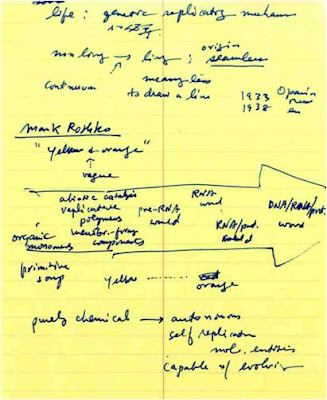 life: genetic replicating mechanism
non living → living ; origin seamless
continuum meaningless
to draw a line
1933
1938 Oparin
Mark Rothko
"yellow & orange"
vague
abiotic catalysis RNA
replicative world
polymers pre-RNA DNA/RNA/prot.
organic membr.-forming world RNA/prot. world
monomers components world
primitive yellow orange
soup
purely chemical → autonomous
self replicating
mol. entities
capable of evolving